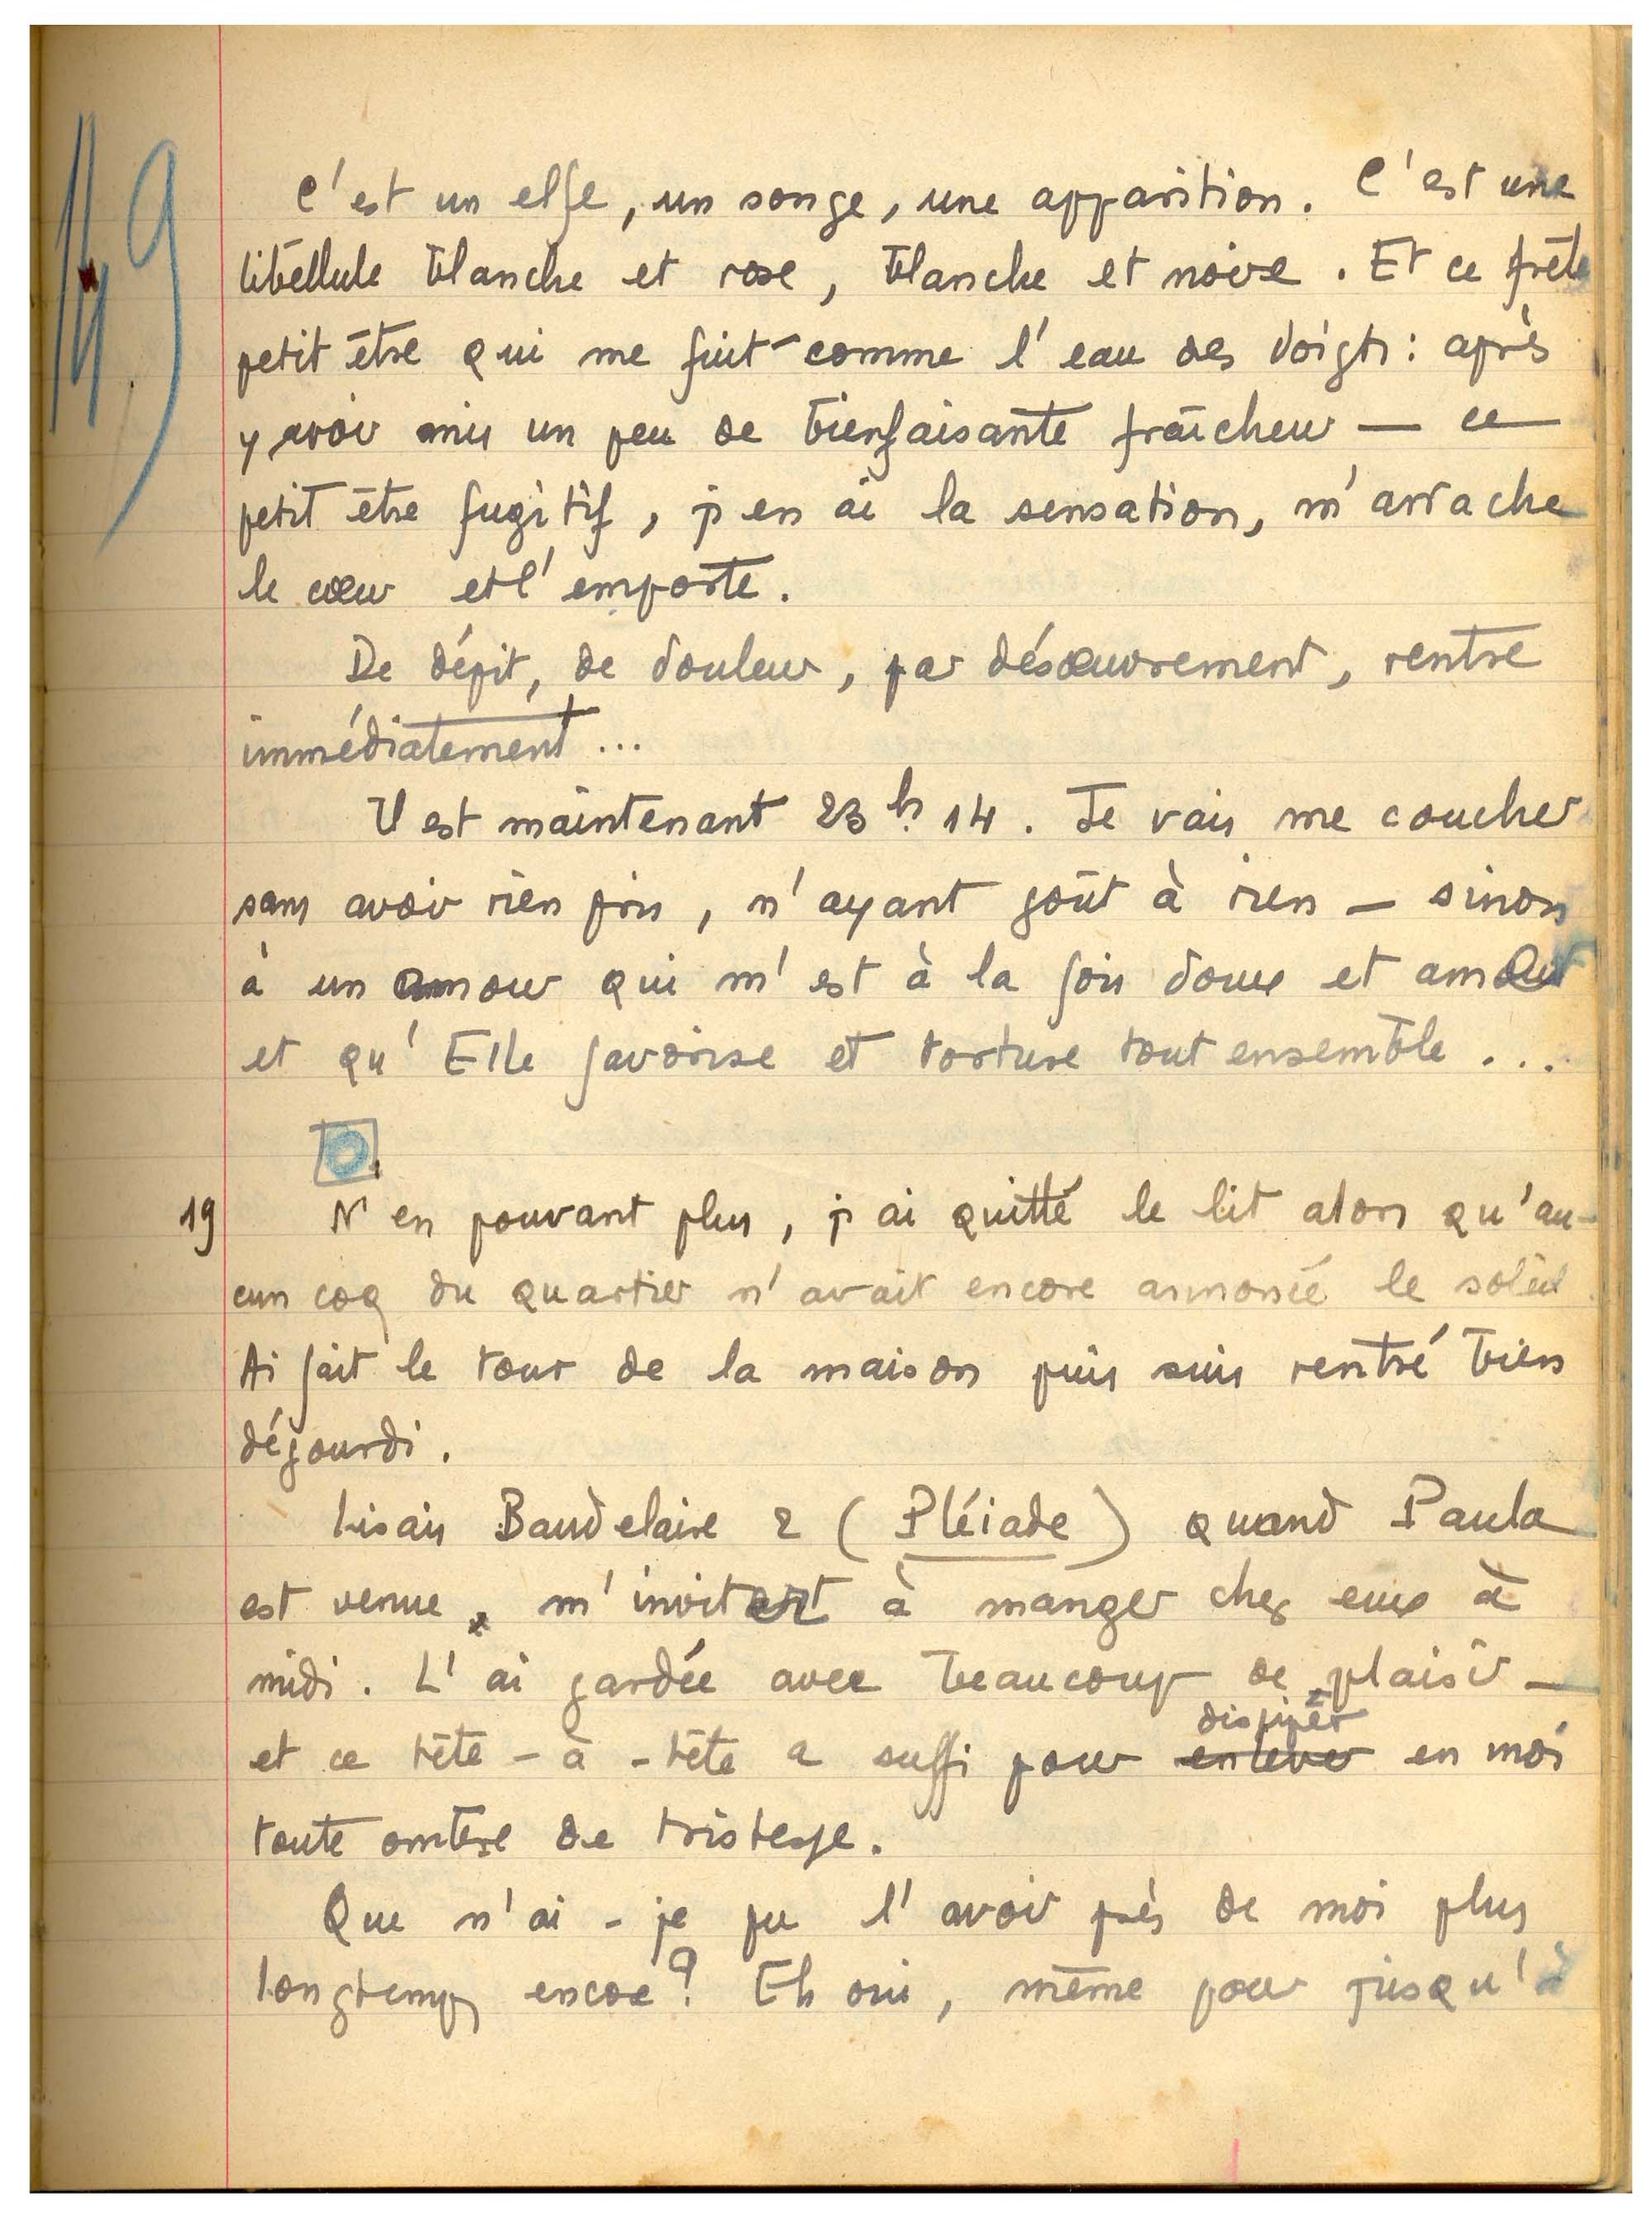 149
C'est un elfe, un songe, une apparition. C'est une
libellule blanche et rose, blanche et noire. Et ce frêle
petit être qui me fuit comme l'eau des doigts: après
y avoir mis un peu de bienfaisante fraîcheur — ce
petit être fugitif, j'en ai la sensation, m'arrache
le cœur et l'emporte.
De dépit, de douleur, par désœuvrement, rentre
immédiatement...
Il est maintenant 23 h. 14. Je vais me coucher
sans avoir rien pris, n'ayant goût à rien — sinon
à un amour qui m'est à la fois doux et amer
et qu'Elle favorise et torture tout ensemble...
19 N'en pouvant plus, j'ai quitté le lit alors qu'au-
cun coq du quartier n'avait encore annoncé le soleil.
Ai fait le tour de la maison puis suis rentré bien
dégourdi.
Lisais Baudelaire 2 (Pléiade) quand Paula
est venue, m'invitant à manger chez eux à
midi. L'ai gardée avec beaucoup de plaisir —
et ce tête-à-tête a suffi pour enlever dissiper en moi
toute ombre de tristesse.
Que n'ai-je pu l'avoir près de moi plus
longtemps encore? Eh oui, même pour jusqu'à